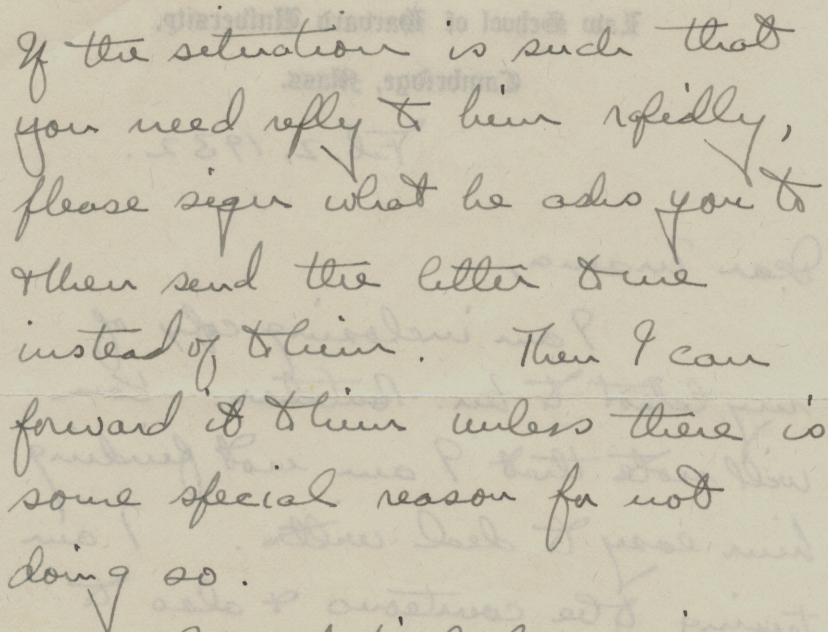 If the situation is such that
you need reply to him rapidly,
please sign what he asks you to
& then send the letter to me
instead of to him. Then I can
forward it to him unless there is
some special reason for not
doing so.